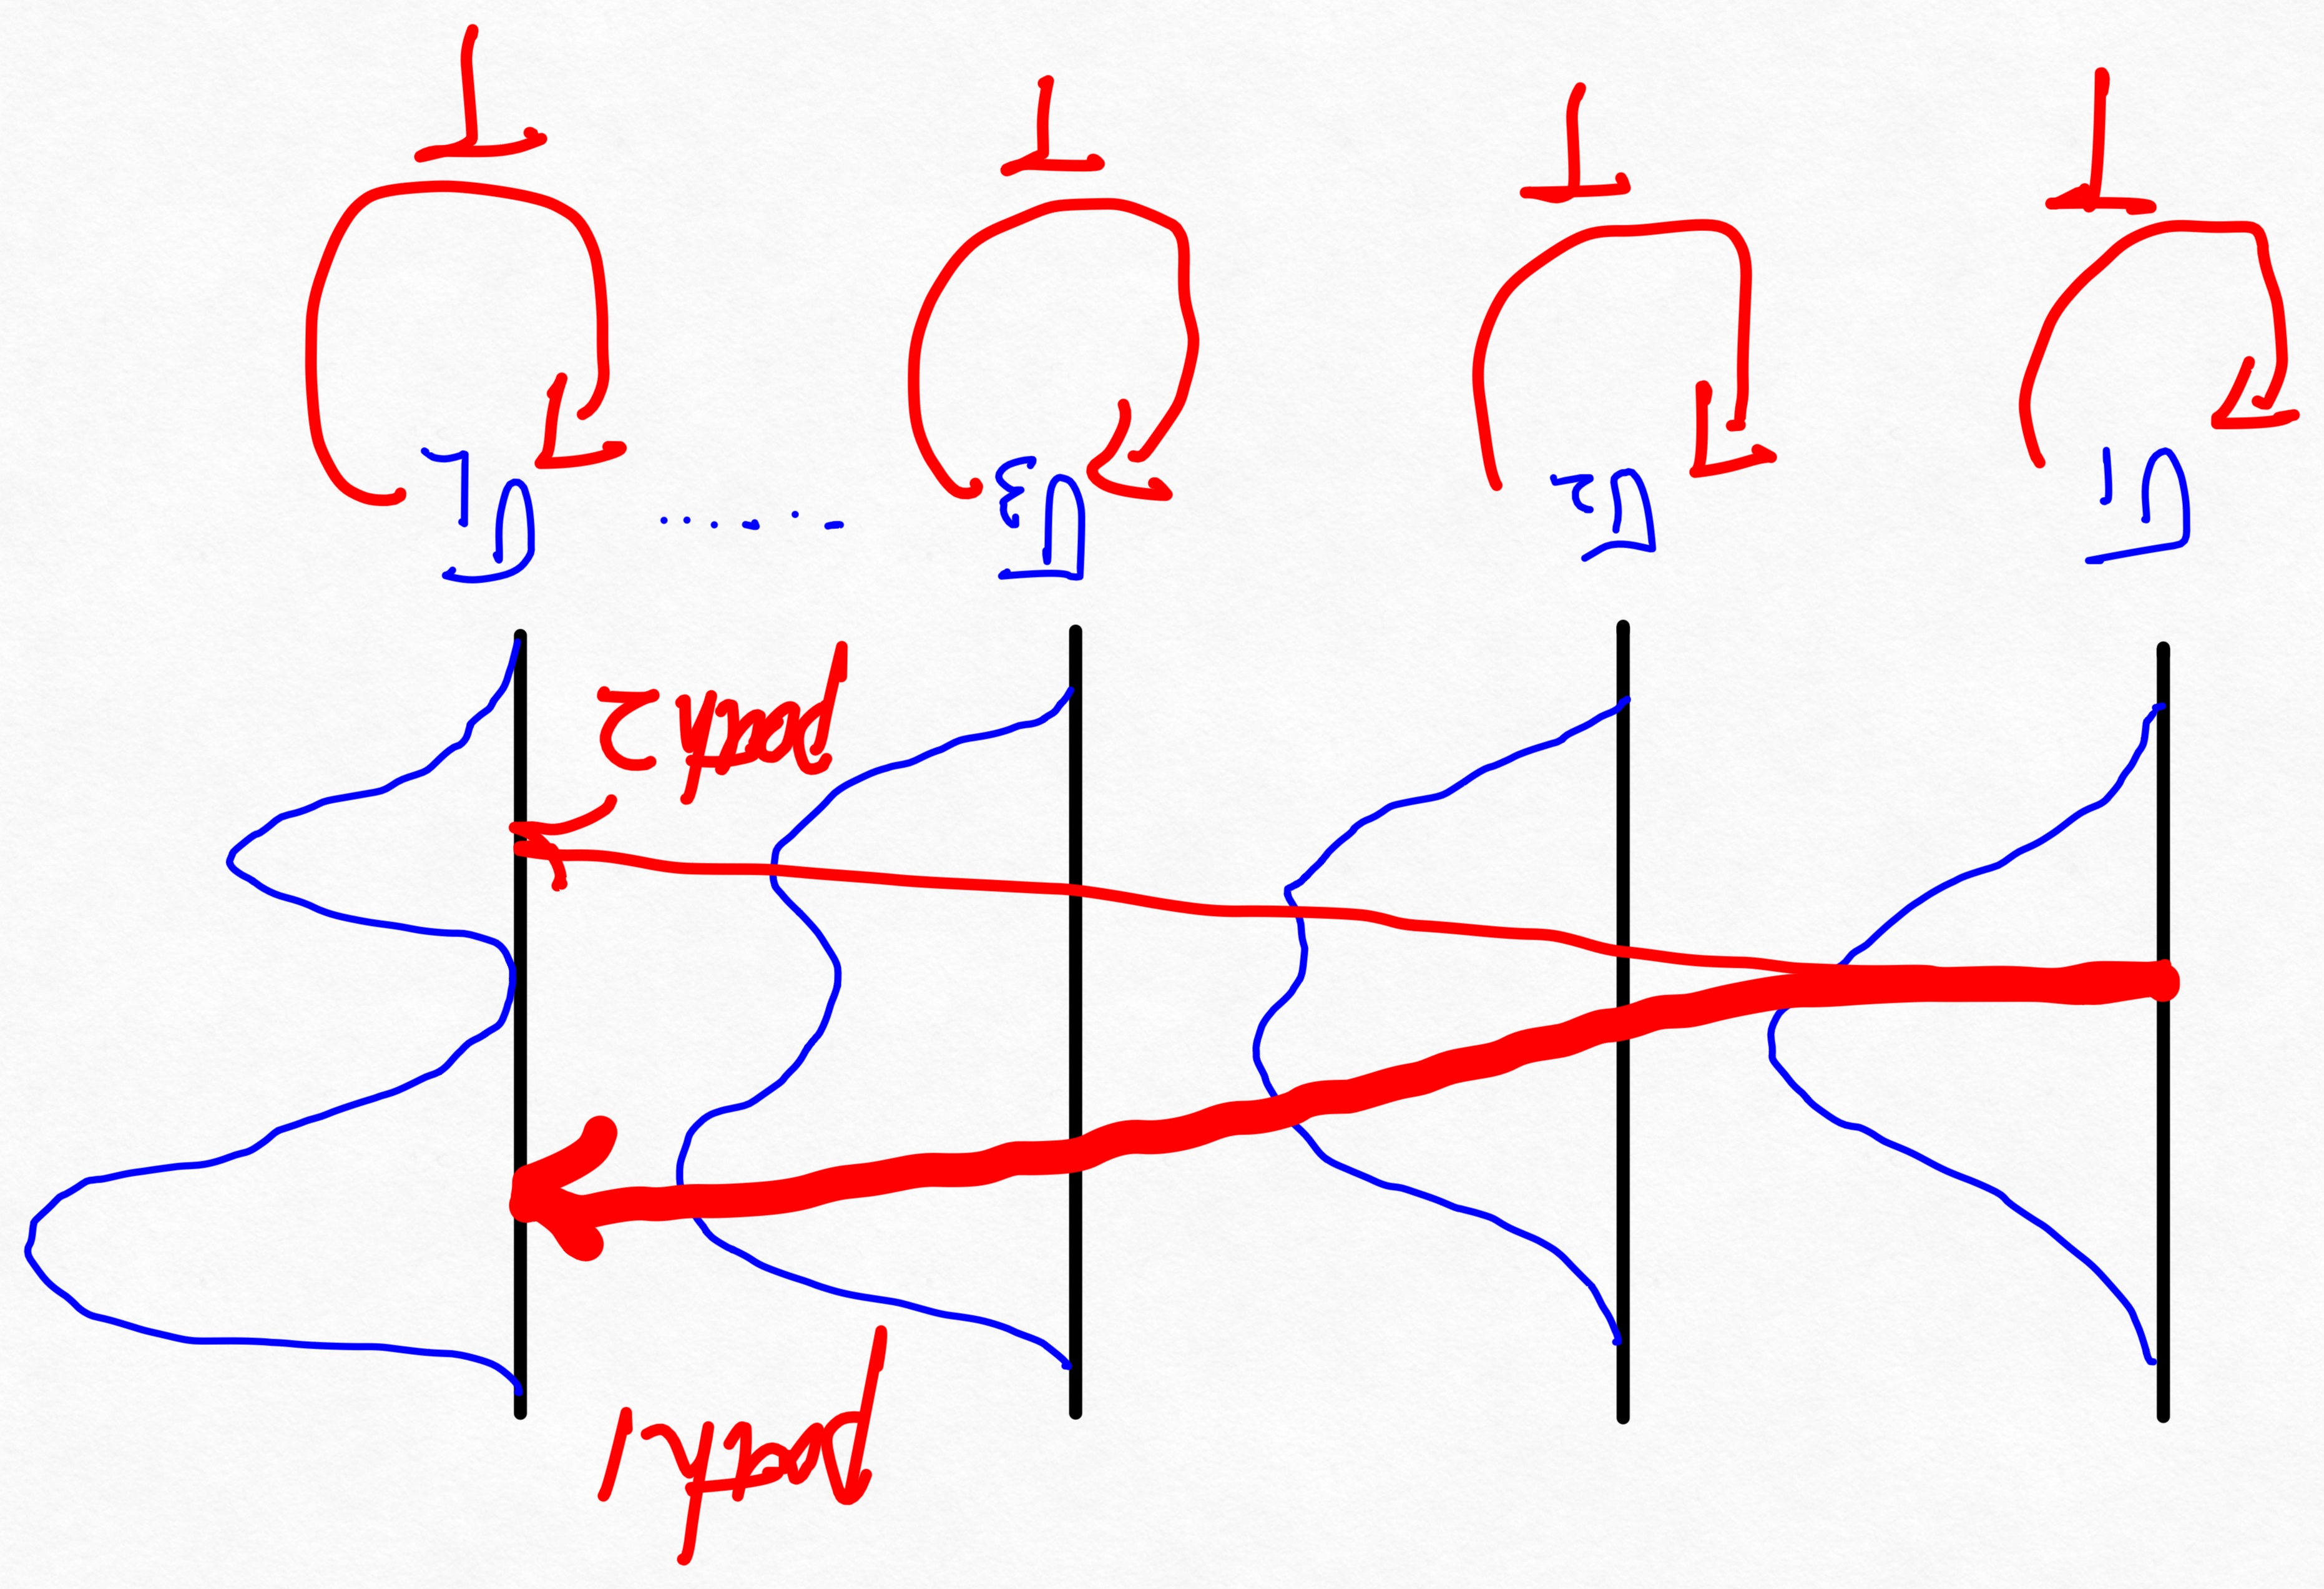 path 1
path 2
σ1 σ2 σ3 ...... σL
T T T T